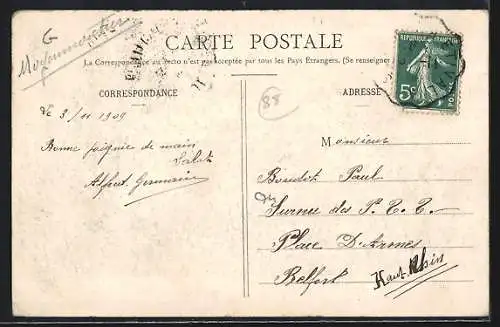 G
CARTE POSTALE
La Correspondance au recto n'est pas acceptée par tous les Pays Etrangers. (Se renseigner
CORRESPONDANCE
ADRESSE
RÉPUBLIQUE FRANÇAISE
5c
POSTES
88
Le 3/11 1909
Bonne poignée de main
Salut
Alfred Germain
Monsieur
Boudot Paul
Surnre des P. T. T.
Place D'Armes
Belfort
Haut-Rhin